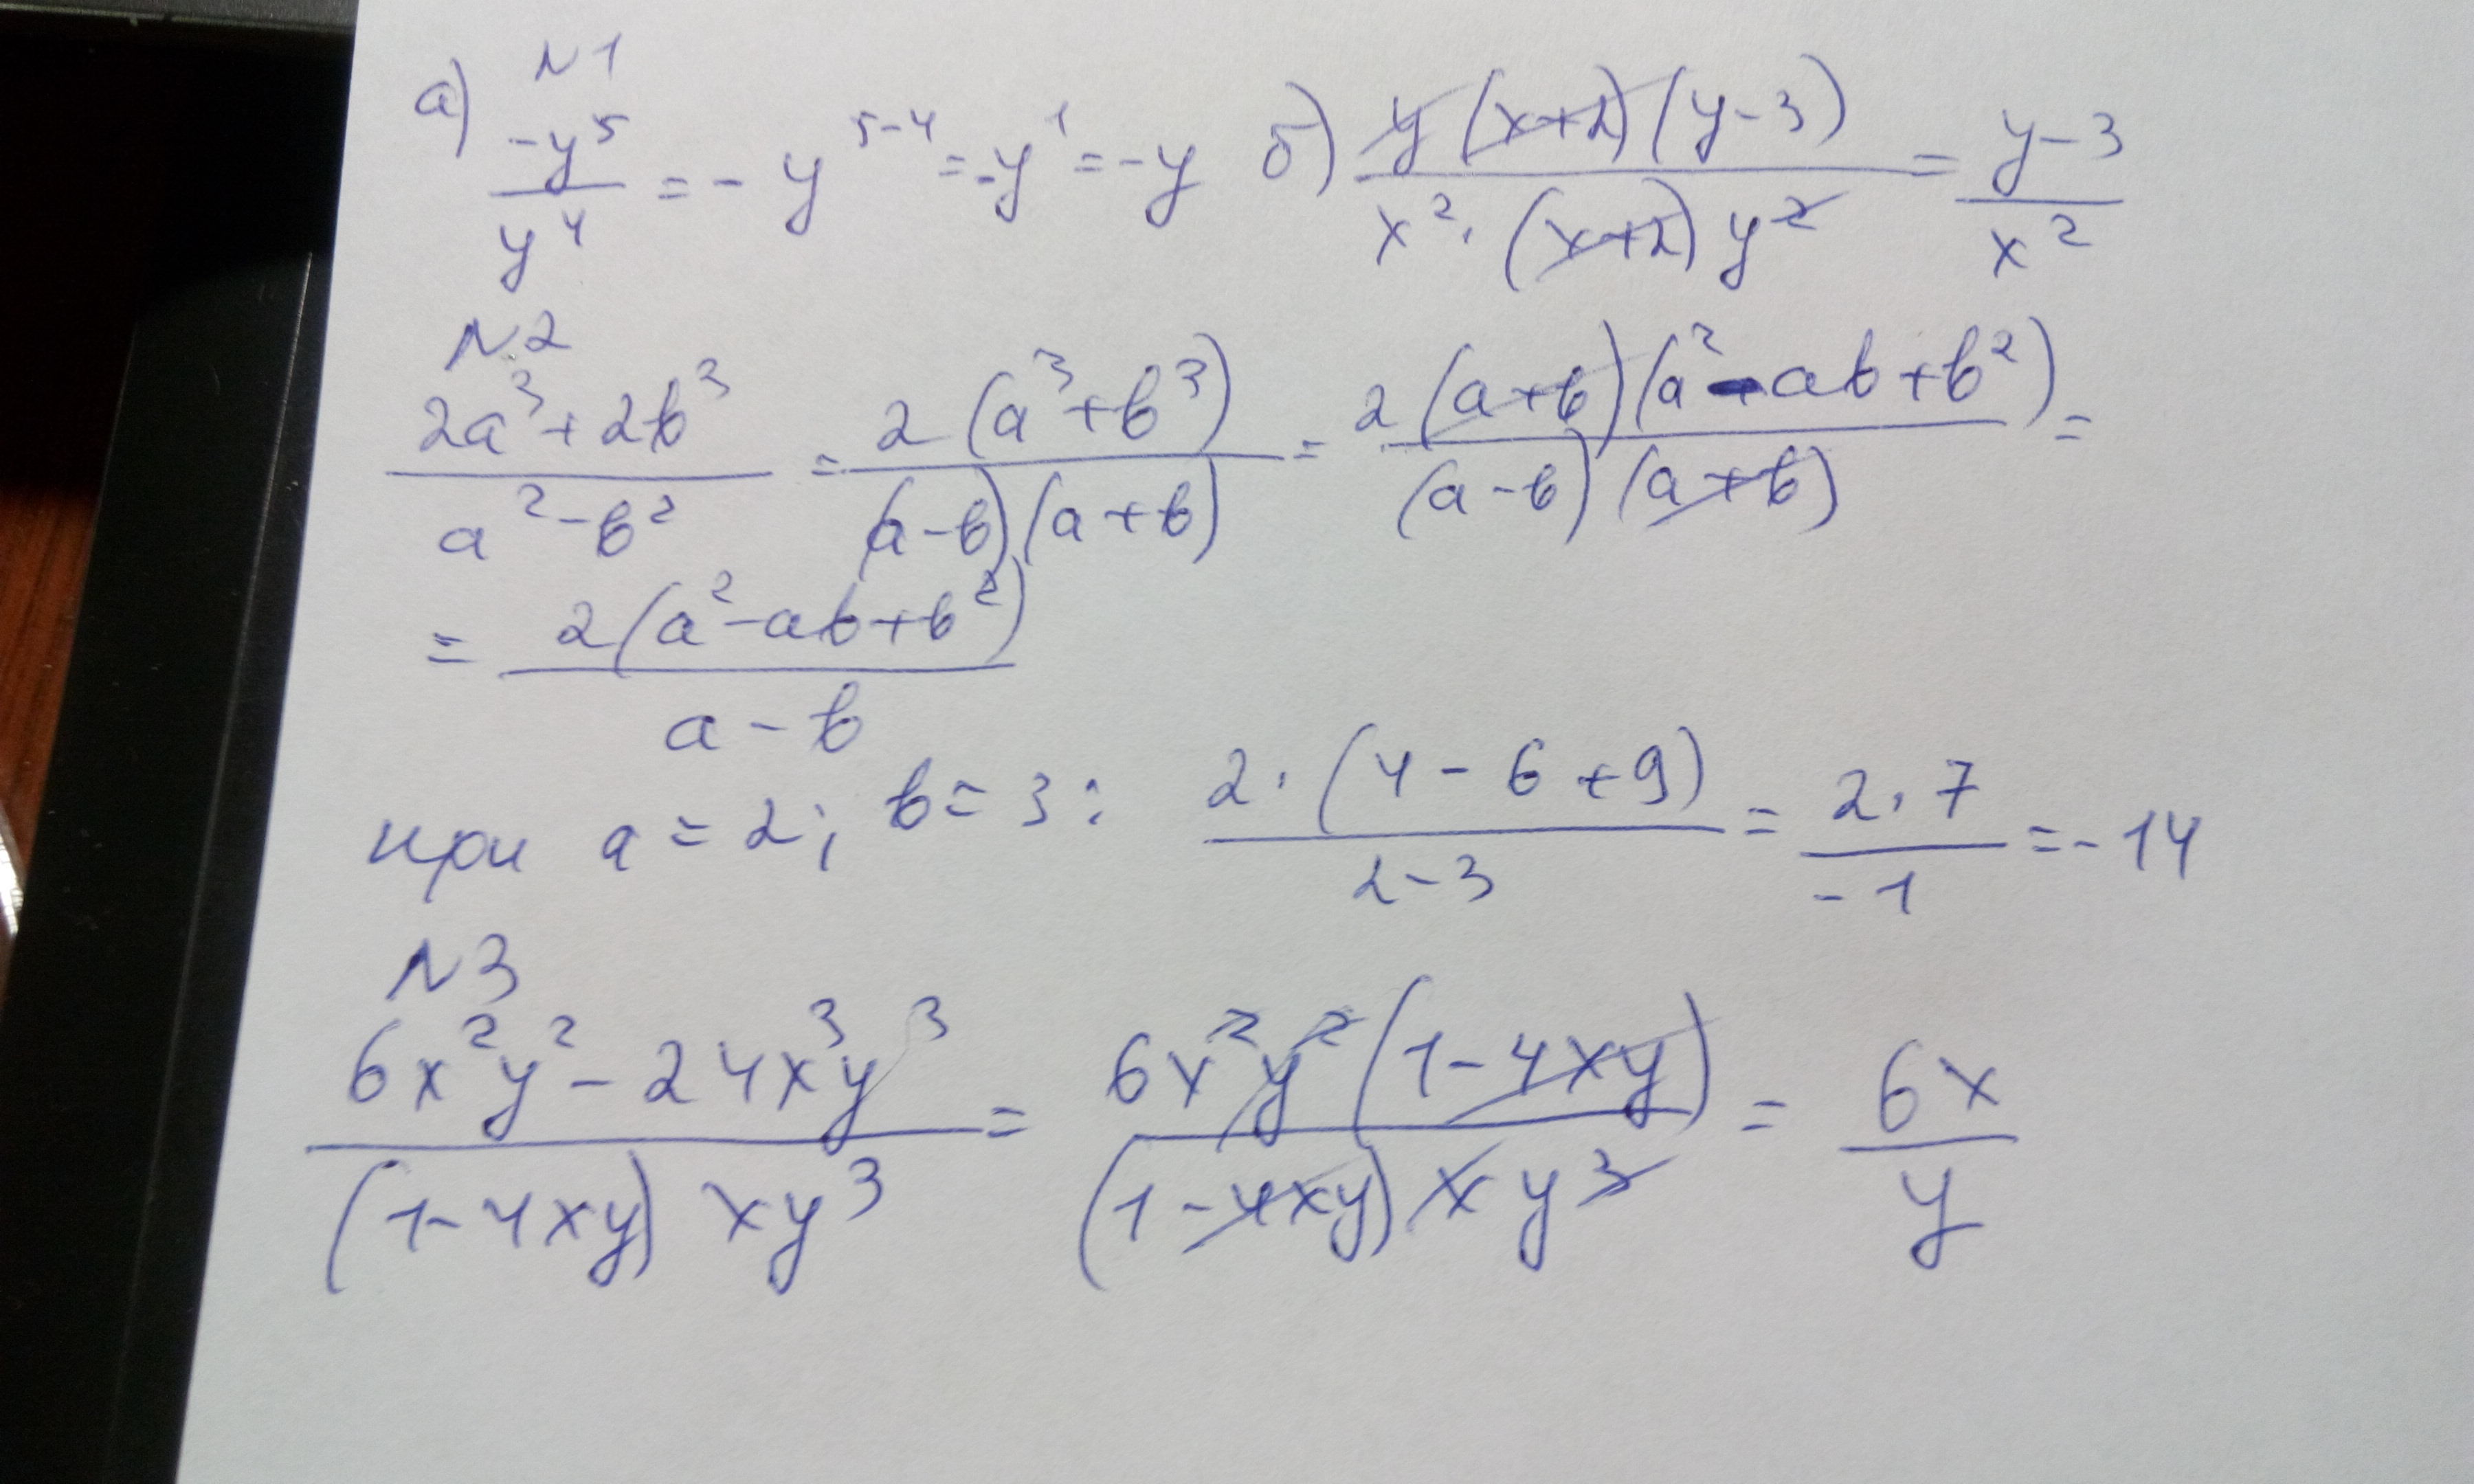 N1
а) -y⁵/y⁴ = -y⁵⁻⁴ = -y¹ = -y б) y(x+2)(y-3)/x²·(x+2)y² = y-3/x²
N2
2a³+2b³/a²-b² = 2(a³+b³)/(a-b)(a+b) = 2(a+b)(a²-ab+b²)/(a-b)(a+b) =
= 2(a²-ab+b²)/a-b
при a=2; b=3: 2·(4-6+9)/2-3 = 2·7/-1 = -14
N3
6x²y²-24x³y³/(1-4xy)xy³ = 6x²y²(1-4xy)/(1-4xy)xy³ = 6x/y